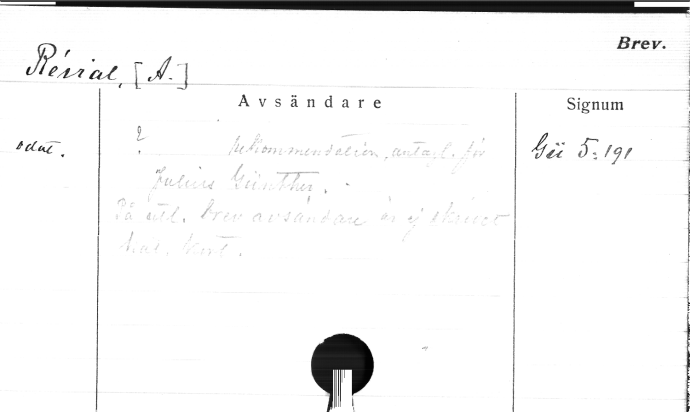 Brev.
Révial, [A.]
Avsändare
Signum
odat.
? rekommendation, antagl. för
Gü 5:191
Julius Günther.
På utl. brev avsändare är ej skrivet
kort.